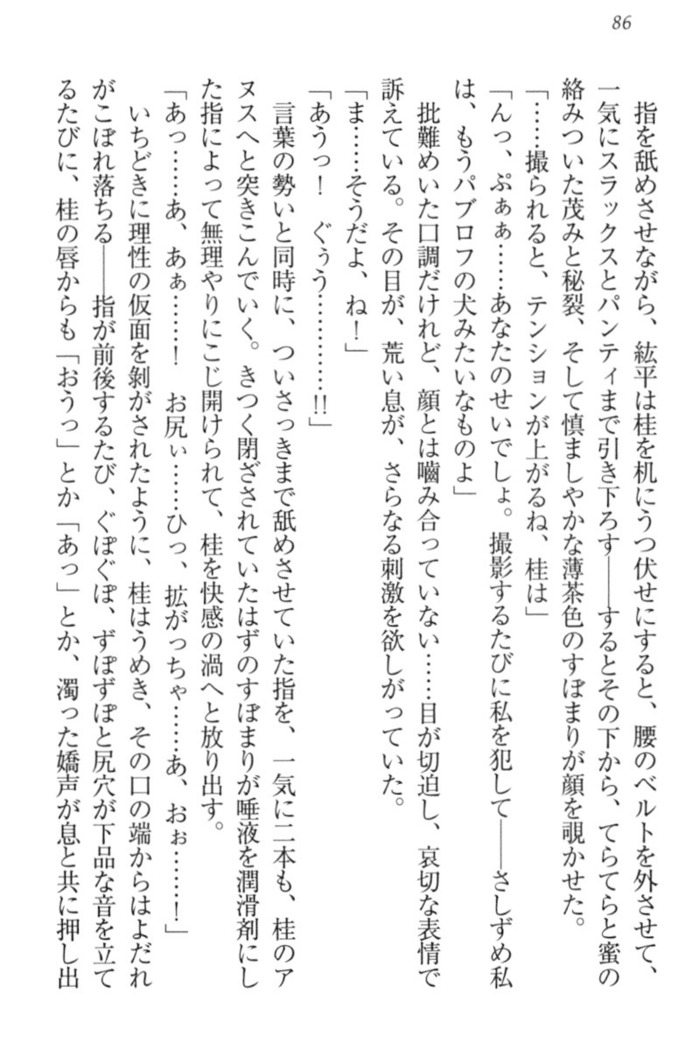 86
指を舐めさせながら、紘平は桂を机にうつ伏せにすると、腰のベルトを外させて、
一気にスラックスとパンティまで引き下ろす――するとその下から、てらてらと蜜の
絡みついた茂みと秘裂、そして慎ましやかな薄茶色のすぼまりが顔を覗かせた。
「……撮られると、テンションが上がるね、桂は」
「んっ、ぷぁぁ……あなたのせいでしょ。撮影するたびに私を犯して――さしずめ私
は、もうパブロフの犬みたいなものよ」
批難めいた口調だけれど、顔とは嚙み合っていない……目が切迫し、哀切な表情で
訴えている。その目が、荒い息が、さらなる刺激を欲しがっていた。
「ま……そうだよ、ね！」
「あうっ！　ぐぅう…………!!」
言葉の勢いと同時に、ついさっきまで舐めさせていた指を、一気に二本も、桂のア
ヌスへと突きこんでいく。きつく閉ざされていたはずのすぼまりが唾液を潤滑剤にし
た指によって無理やりにこじ開けられて、桂を快感の渦へと放り出す。
「あっ……あ、あぁ……！　お尻ぃ……ひっ、拡がっちゃ……あ、おぉ……！」
いちどきに理性の仮面を剝がされたように、桂はうめき、その口の端からはよだれ
がこぼれ落ちる――指が前後するたび、ぐぽぐぽ、ずぽずぽと尻穴が下品な音を立て
るたびに、桂の唇からも「おうっ」とか「あっ」とか、濁った嬌声が息と共に押し出